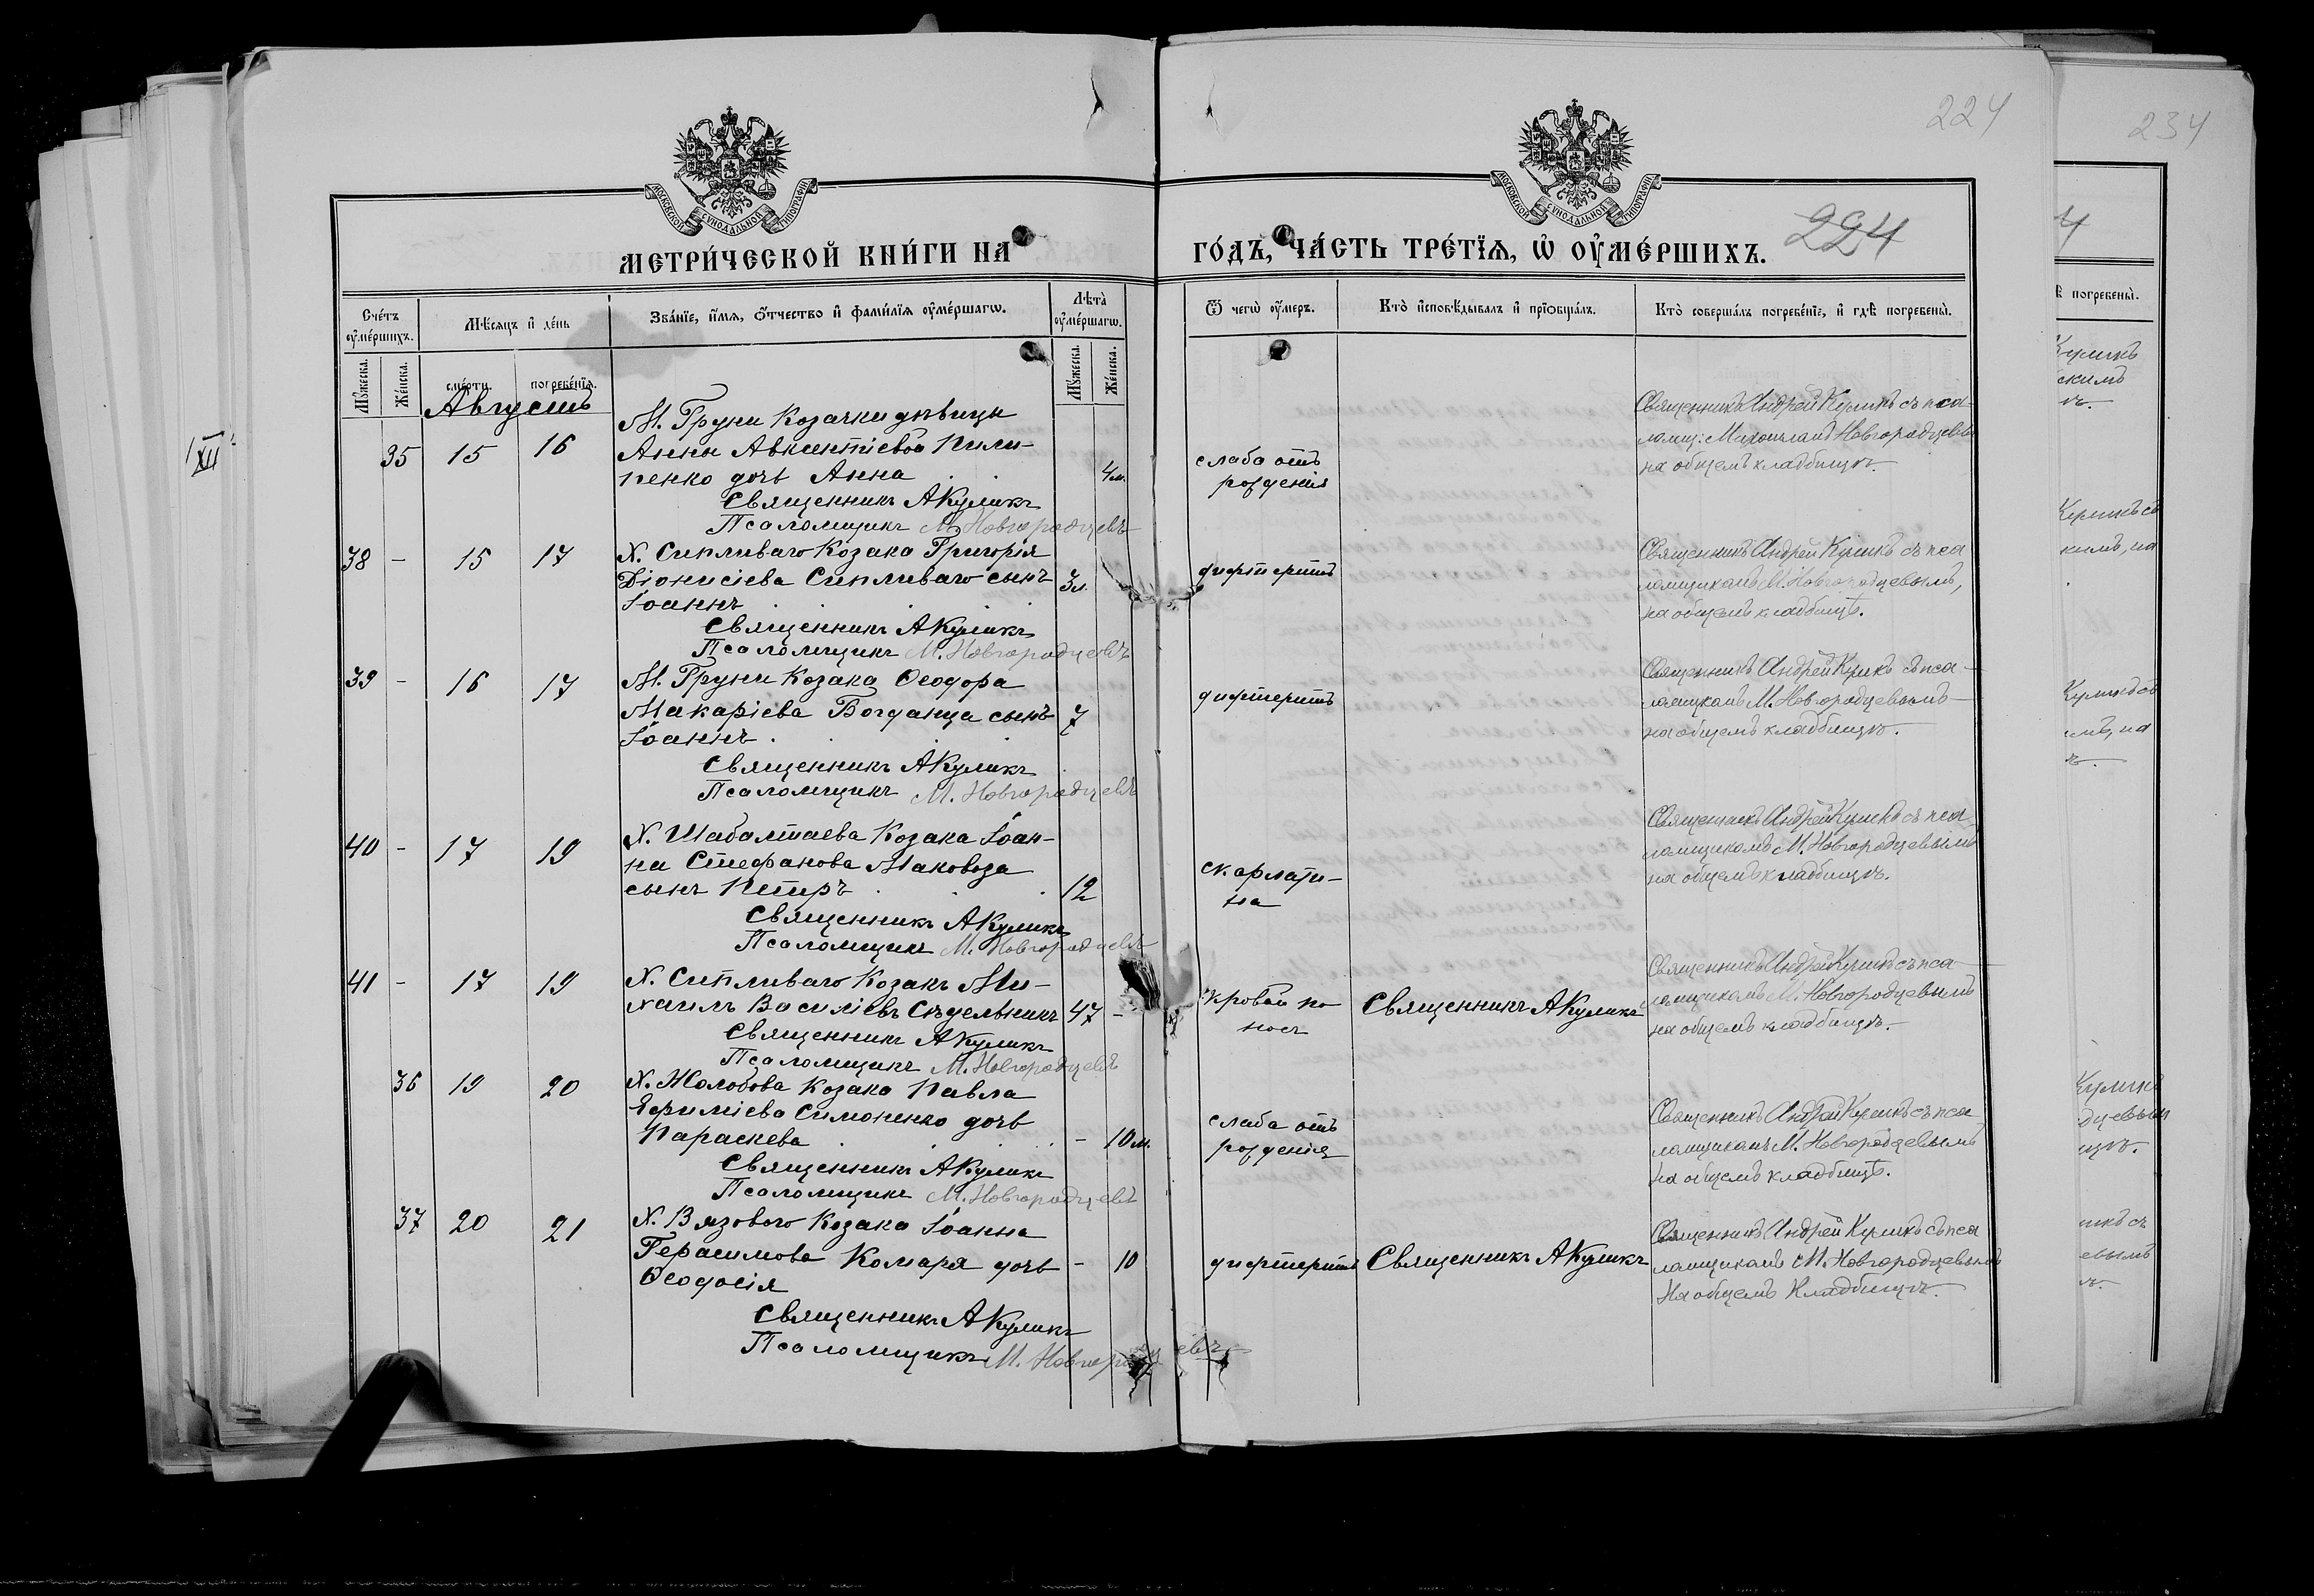 224
234
МОСКОВСКОЙ СУНОДАЛЬНОЙ ТИПОГРАФІИ
МОСКОВСКОЙ СУНОДАЛЬНОЙ ТИПОГРАФІИ
МЕТРИ́ЧЕСКОЙ КНИ́ГИ НА ГО́ДЪ, ЧА́СТЬ ТРЕ́ТЇѦ, Ѡ҆ ОУ҆МЕ́РШИХЪ.
224
Сче́тъ оу҆ме́ршихъ.
Мѣ́сяцъ и҆ де́нь
Зва́нїе, и҆́мѧ, ѻ҆́тчество и҆ фами́лїѧ оу҆ме́ршагѡ.
Лѣ́та оу҆ме́ршагѡ.
Ѿ чегѡ̀ оу҆́меръ.
Кто̀ и҆сповѣ́дывалъ и҆ прїѡбща́лъ.
Кто̀ соверша́лъ погребе́нїе, и҆ гдѣ̀ погребены̀.
Мꙋ́жеска. Же́нска. сме́рти. погребе́нїѧ. Мꙋ́жеска. Же́нска.
Августъ
35 15 16
М. Груни Козачки дѣвицы
Анны Авксентіевой Пили-
пенко дочь Анна 4 м.
Священникъ АКуликъ
Псаломщикъ М. Новгородцевъ
слаба отъ
рожденія
Священникъ Андрей Куликъ съ пса-
ломщ: Михаиломъ Новгородцевымъ
на общемъ кладбищѣ.
38 - 15 17
Х. Сипливаго Козака Григорія
Діонисіева Сипливаго сынъ 3 л.
Іоаннъ
Священникъ АКуликъ
Псаломщикъ М. Новгородцевъ
дифтеритъ
Священникъ Андрей Куликъ съ пса
ломщикомъ М. Новгородцевымъ,
на общемъ кладбищѣ.
39 - 16 17
М. Груни Козака Ѳеодора
Макаріева Богданца сынъ 7
Іоаннъ
Священникъ АКуликъ
Псаломщикъ М. Новгородцевъ
дифтеритъ
Священникъ Андрей Куликъ съ пса-
ломщикомъ М. Новгородцевымъ
на общемъ кладбищѣ.
40 - 17 19
Х. Шабалтаева Козака Іоан-
на Стефанова Маковоза
сынъ Петръ 12
Священникъ АКуликъ
Псаломщикъ М. Новгородцевъ
скарлати-
на
Священникъ Андрей Куликъ съ пса
ломщикомъ М. Новгородцевымъ
на общемъ кладбищѣ.
41 - 17 19
Х. Сипливаго Козакъ Ми-
хаилъ Василіевъ Сѣдельникъ 47 -
Священникъ АКуликъ
Псаломщикъ М. Новгородцевъ
кровавый по
носъ
Священникъ АКуликъ
Священникъ Андрей Куликъ съ пса
ломщикомъ М. Новгородцевымъ
на общемъ кладбищѣ.
36 19 20
Х. Жолобова Козака Павла
Ефиміева Симоненко дочь
Параскева - 10 м.
Священникъ АКуликъ
Псаломщикъ М. Новгородцевъ
слаба отъ
рожденія
Священникъ Андрей Куликъ съ пса
ломщикомъ М. Новгородцевымъ
на общемъ кладбищѣ.
37 20 21
Х. Вязоваго Козака Іоанна
Герасимова Комаря дочь - 10
Ѳеодосія
Священникъ АКуликъ
Псаломщикъ М. Новгородцевъ
дифтеритъ
Священникъ АКуликъ
Священникъ Андрей Куликъ съ пса
ломщикомъ М. Новгородцевымъ
На общемъ Кладбищѣ.
XII
погребены̀.
Куликъ
скимъ
Куликъ съ
кимъ, на
Куликъ съ
Куликъ
дцевым
щѣ.
икъ съ
евымъ